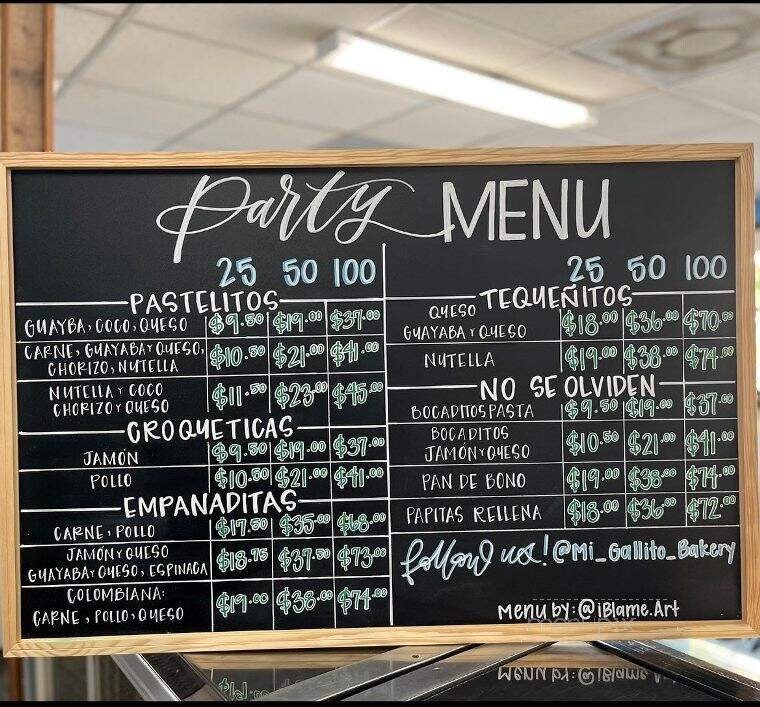 Party MENU
25 50 100
PASTELITOS
GUAYBA, COCO, QUESO $9.50 $19.00 $37.00
CARNE, GUAYABA Y QUESO, CHORIZO, NUTELLA $10.50 $21.00 $41.00
NUTELLA Y COCO
CHORIZO Y QUESO $11.50 $23.00 $45.00
CROQUETICAS
JAMÓN $9.50 $19.00 $37.00
POLLO $10.50 $21.00 $41.00
EMPANADITAS
CARNE, POLLO $17.50 $35.00 $68.00
JAMÓN Y QUESO
GUAYABA Y QUESO, ESPINACA $18.75 $37.50 $73.00
COLOMBIANA:
CARNE, POLLO, QUESO $19.00 $38.00 $74.00
25 50 100
TEQUEÑITOS
QUESO
GUAYABA Y QUESO $18.00 $36.00 $70.00
NUTELLA $19.00 $38.00 $74.00
NO SE OLVIDEN
BOCADITOS PASTA $9.50 $19.00 $37.00
BOCADITOS
JAMÓN Y QUESO $10.50 $21.00 $41.00
PAN DE BONO $19.00 $38.00 $74.00
PAPITAS RELLENA $18.00 $36.00 $72.00
follow us! @Mi_Gallito_Bakery
Menu by: @iBlame.Art